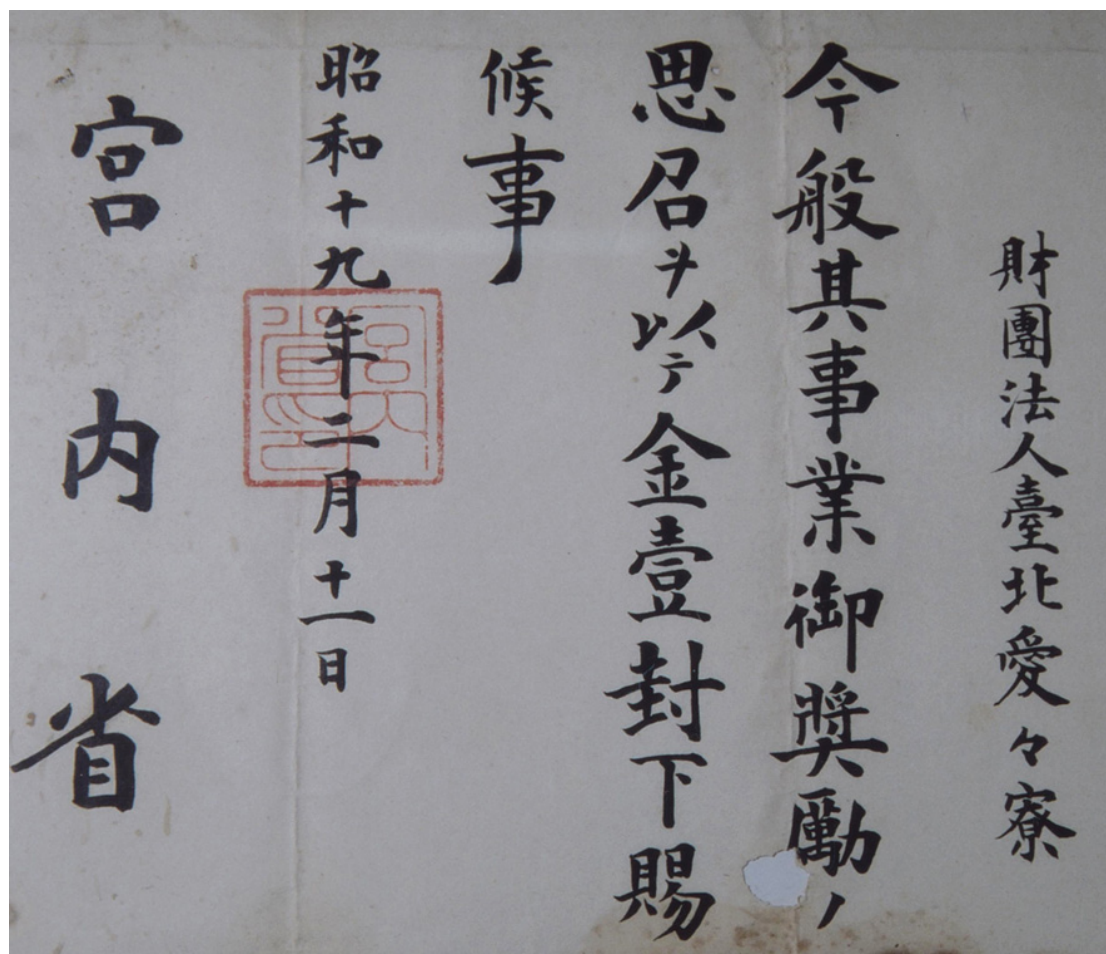 財團法人臺北愛々寮
今般其事業御奬勵ノ
思召ヲ以テ金壹封下賜
候事
昭和十九年二月十一日
宮内省印
宮内省